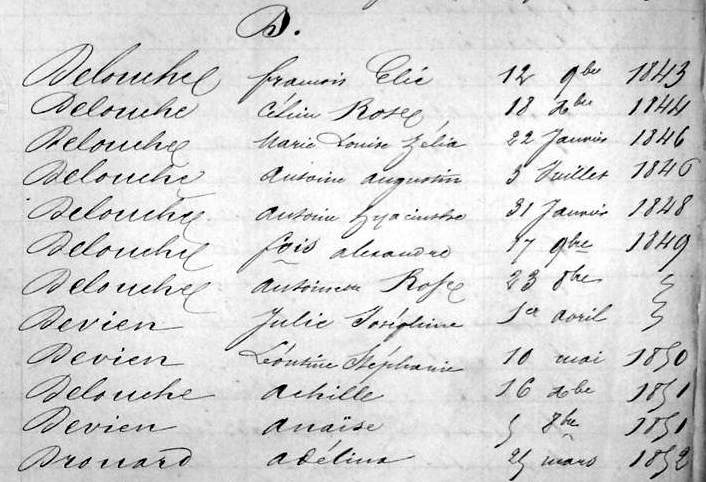 D.
Delouche françois Elie 12 9bre 1843
Delouche Célina Rose 18 xbre 1844
Delouche Marie Louise Zélia 22 Janvier 1846
Delouche Antoine Augustin 3 Juillet 1846
Delouche Antoine hyacinthe 31 Janvier 1848
Delouche fçois alexandre 17 9bre 1849
Delouche Rose 23 8bre
Devien Julie Joséphine 1er avril
Devien Léontine Stéphanie 10 mai 1850
Delouche Achille 16 xbre 1851
Devien anaïse 5 8bre 1851
Drouard adélina 25 mars 1852